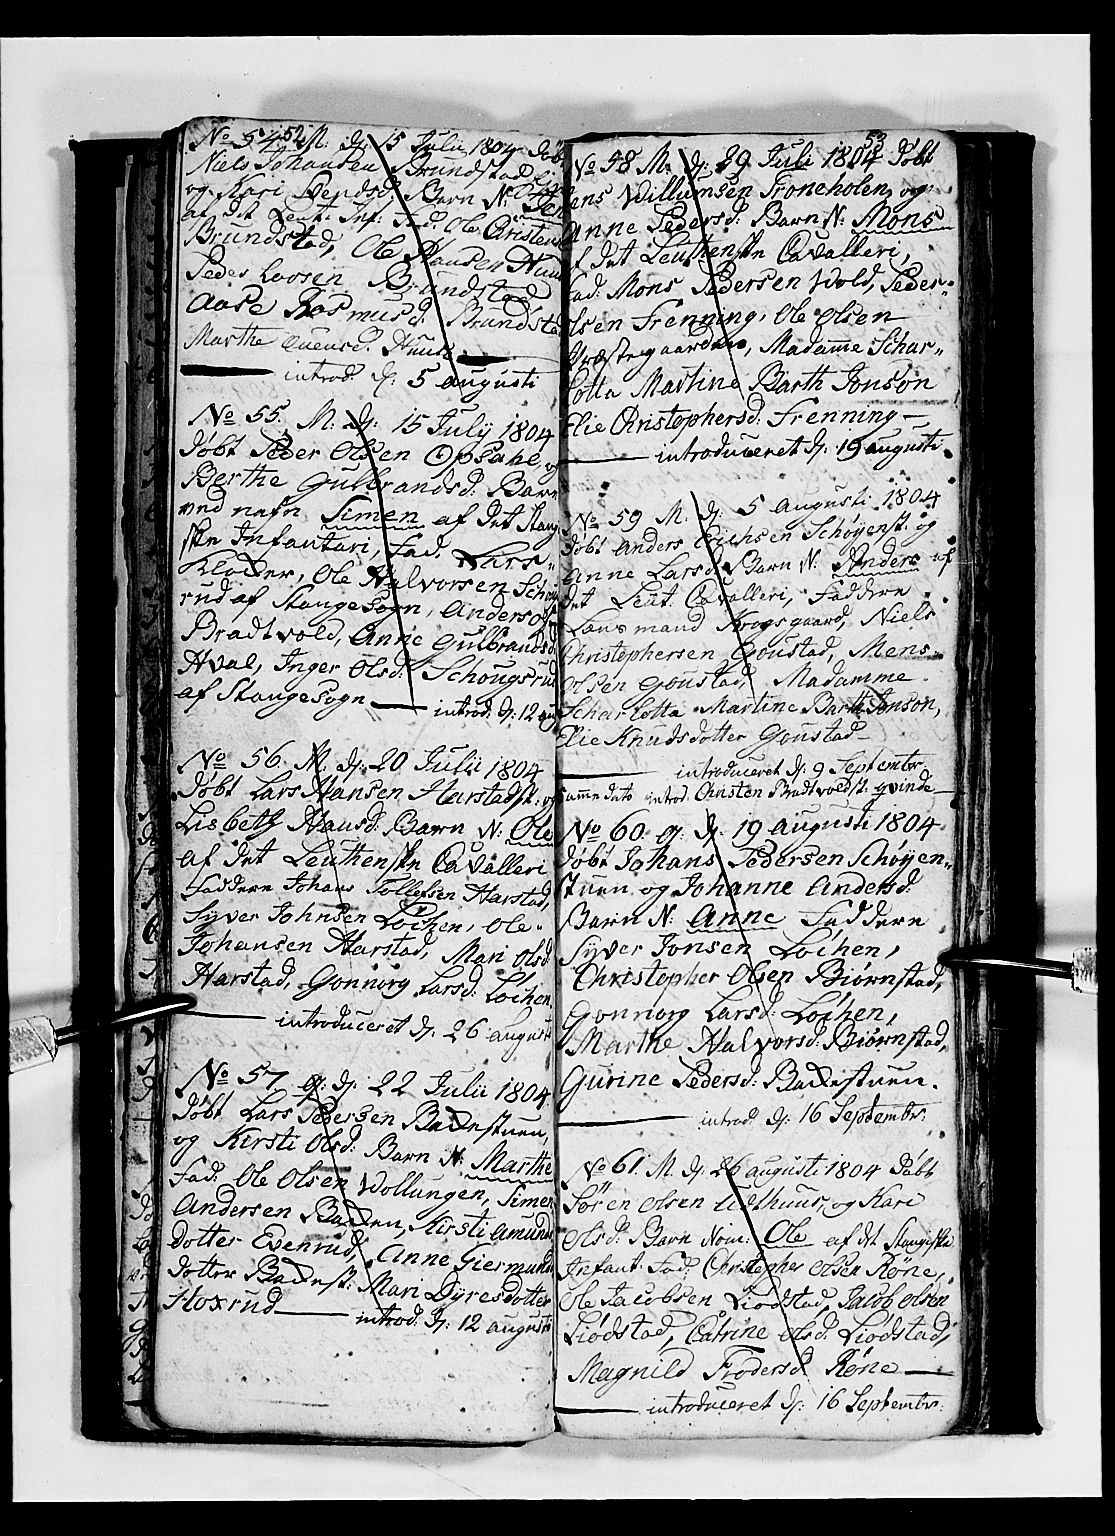 52
No 54 M. dj. 15 Julii 1804 Døbt
Niels Johansen Brundstad
og Kari Svendsd. Barn N:
af det Leut. Inf: Fad. Ole Christens
Brundstad, Ole Hansen Huu
Peder Larsen Brundstad
Aase Rasmusd. Brundste
Marthe Evensd. Huus
introd. dj. 5 augusti
No 55. M. dj. 15 July 1804
døbt Peder Olsen Opsahl, og
Berthe Gulbrandsd. Barn
ved nafn Simen af det Stang
ske Infantari, Fad. Lars
Kloden, Ole Halvorsen Schou
rud af Stangesogn, Anders Ols
Bradtvold, Anne Gulbrandsd
Hval, Inger Olsd. Schougsrud
af Stangesogn introd. dj. 12 au
No 56. M. dj. 20 Julii 1804
døbt Lars Hansen Harstadst: og
Lisbeth Hansd. Barn N: Ole
af det Leuthenske Cavalleri
Faddere Johans Tollefsen Harstad,
Syver Johnsen Lochen, Ole
Johansen Harstad, Mari Olsd
Harstad, Gonnorg Larsd: Lochen
introduceret dj. 26 august
No 57. q. dj. 22 Julii 1804
døbt Lars Pedersen Bakestuen,
og Kirsti Olsd: Barn N: Marthe
Fad: Ole Olsen Wollungen, Simen
Andersen Bakken, Kirsti Amunds
dotter Evenrud, Anne Giermunds
dotter Bakest: Mari Dyresdotter
Hoxrud introd. dj. 12 augusti
53
No 58 M. dj. 29 Juli 1804 Døbt
Jens Willumsen Froneholen, og
Anne Pedersd. Barn N: Mons
af det Leuthenske Cavalleri,
Fad: Mons Pedersen Wold, Peder
Olsen Frenning, Ole Olsen
Præstegaarden, Madame Schar
lotta Martine Barth Jonson
Elie Christophersd. Frenning
introduceret dj. 19 augusti
No 59 M. dj. 5 augusti 1804
døbt Anders Erichsen Schøyenst. og
Anne Larsd. Barn N: Anders af
det Leut. Cavalleri, Faddere
Lansmand Krogsgaard, Niels
Christophersen Goustad, Mens
Olsen Goustad, Madamme
Scharlotta Martine Barth Jonson,
Elie Knudsdotter Goustad
introduceret dj. 9 Septembr.
samme dato introd. Christen Bradtvoldst: qvinde
No 60. q. dj. 19 augusti 1804
døbt Johans Pedersen Schøyen
stuen og Johanne Andersd.
Barn N: Anne Faddere
Syver Jonsen Lochen,
Christopher Olsen Biørnstad,
Gonnorg Larsd: Lochen,
Marthe Halvorsd: Biørnstad,
Gurine Pedersd: Bakestuen.
introd. dj. 16 Septembr.
No 61. M. dj. 26 augusti 1804 Døbt
Søren Olsen Uelhuus, og Kari
Olsd: Barn Nom: Ole af det Stangeske
Infant: Fad: Christopher Olsen Røne,
Ole Jacobsen Liødstad, Jacob Olsen
Liødstad, Catrine Olsd. Liødstad,
Magnild Frodersd. Røne
introduceret dj. 16 Septembr.